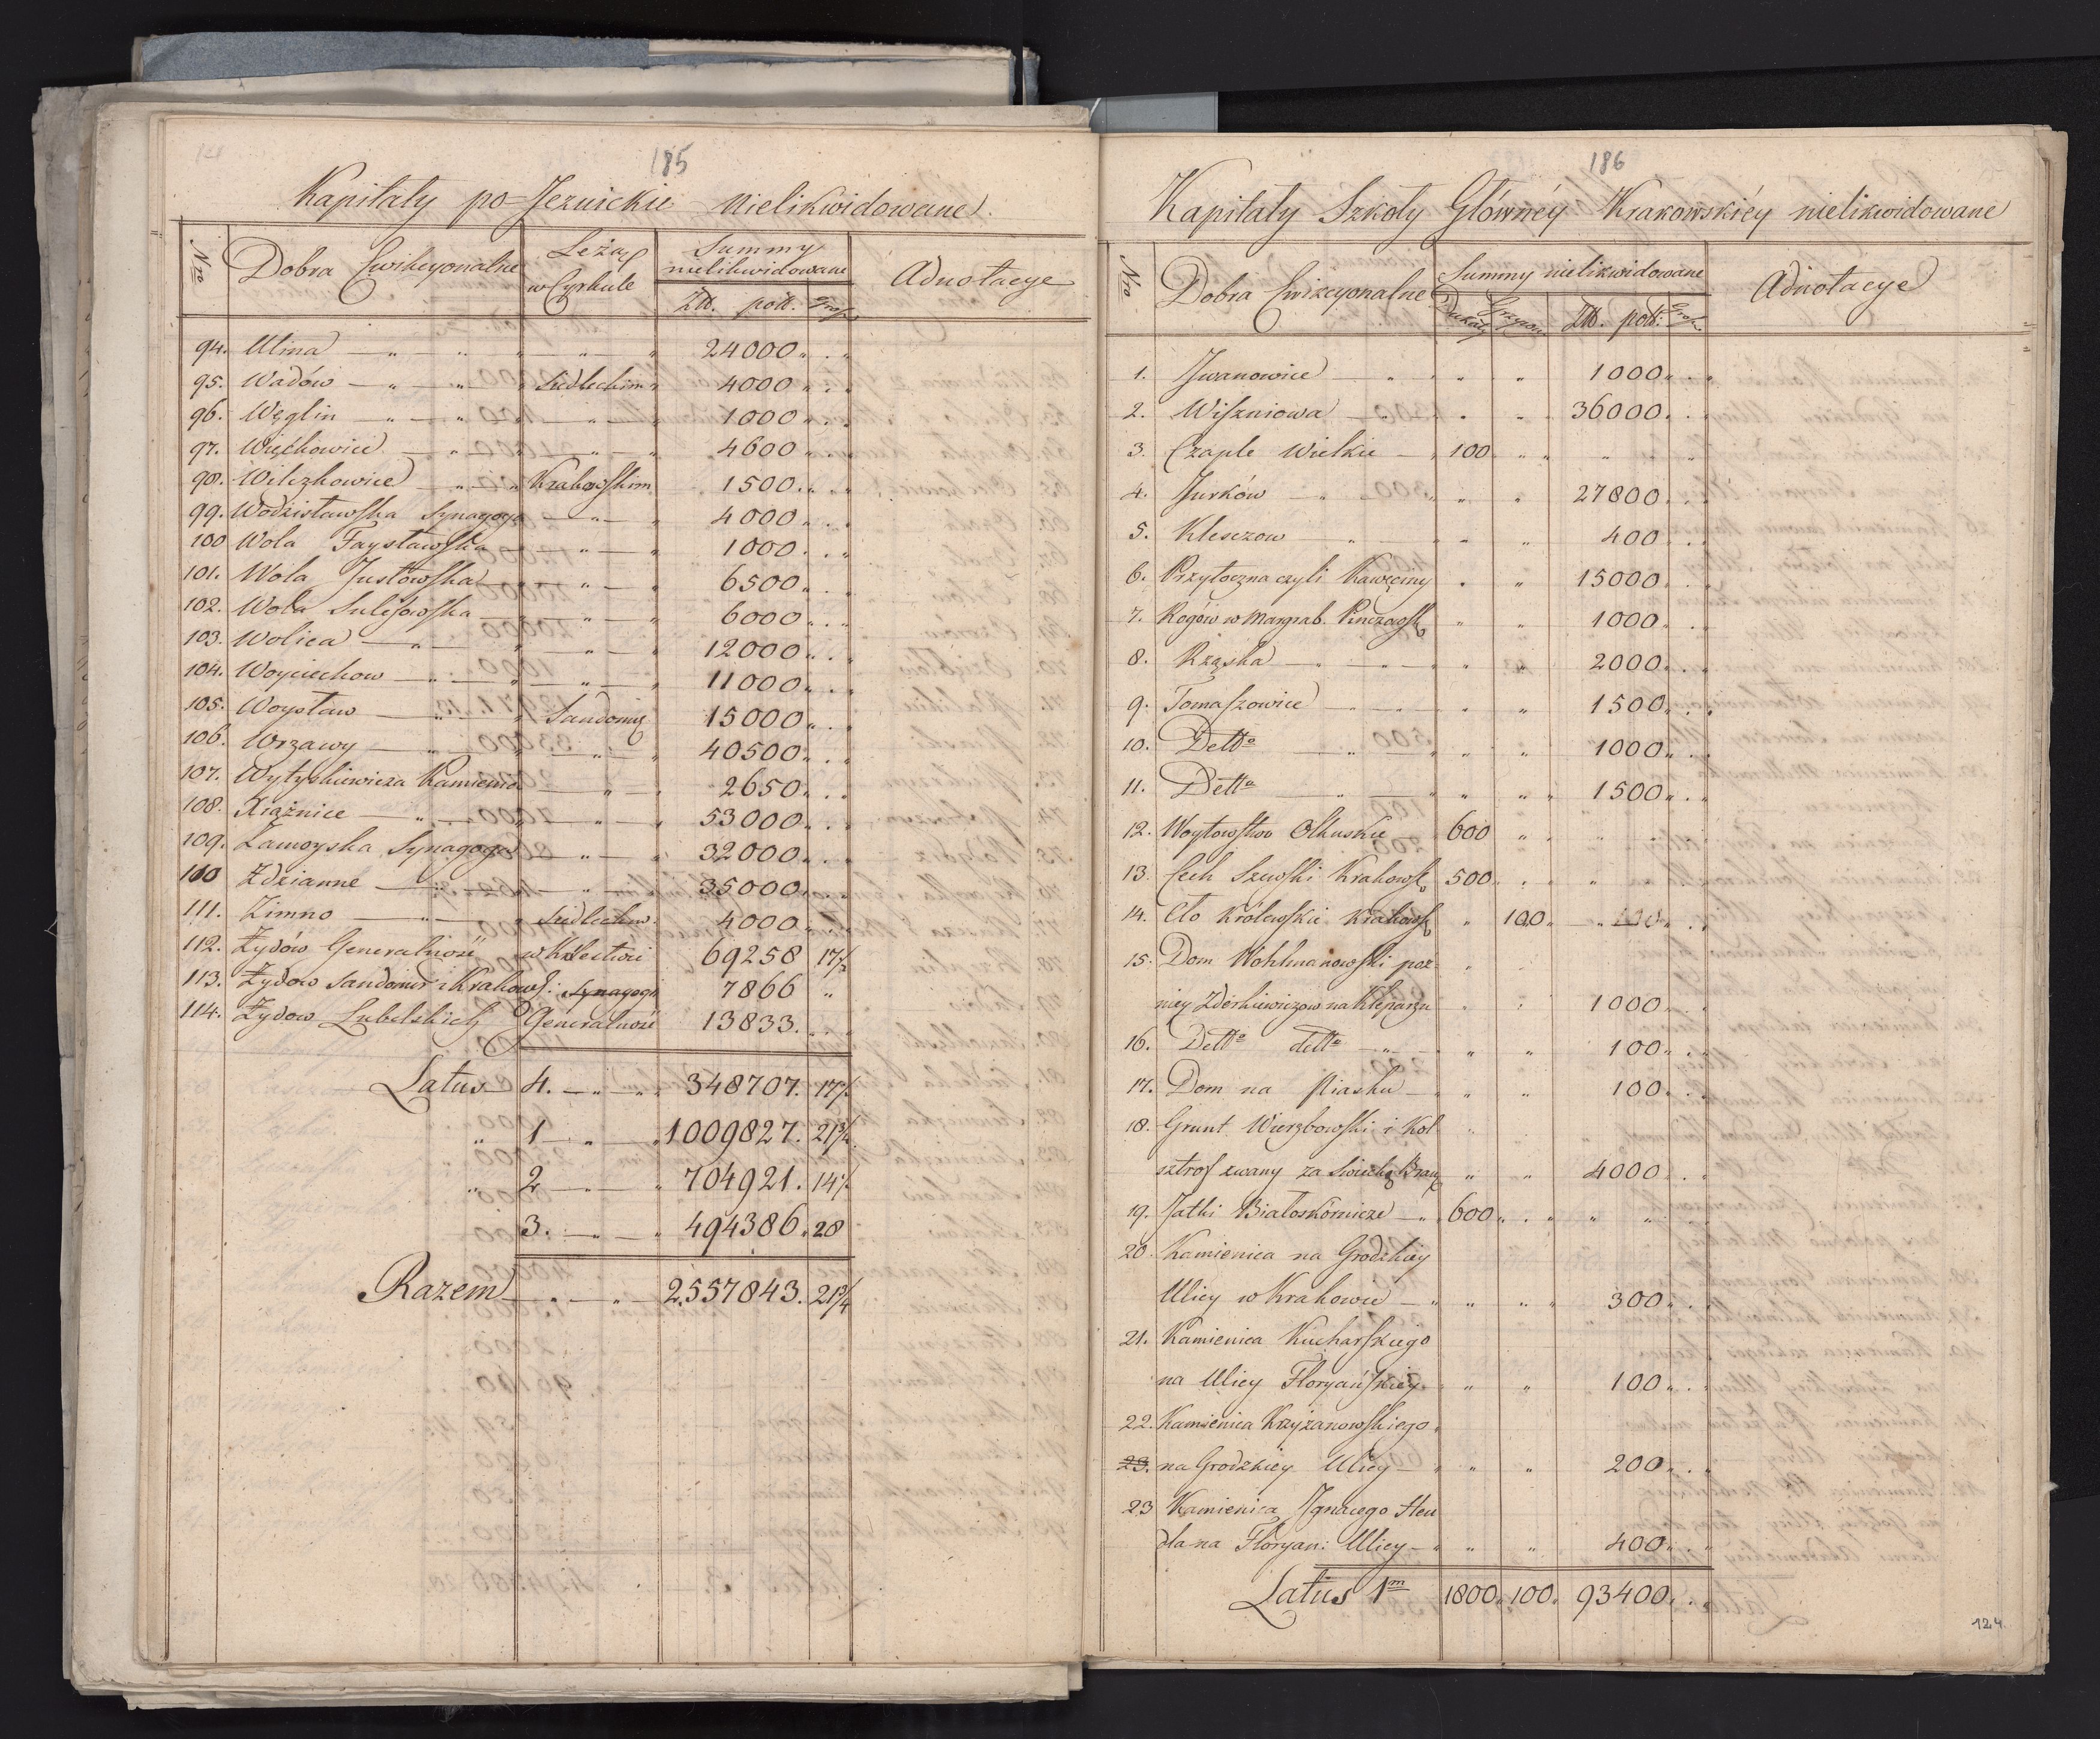 185
Kapitały po-Jezuickie Nielikwidowane.
Nro Dobra Ewikcyonalne Leżą w Cyrkule Summy nielikwidowane Adnotacye
Złt. pols. Grosz
94. Ulina — „ — „ „ — „ — „ 24000 „ . „
95. Wadów — „ — „ Siedleckim „ 4000 „ . „
96. Węglin — „ — „ — „ — 1000 „ . „
97. Więckowice — „ — „ — „ 4600 „ . „
98. Wilczkowice — „ — „ Krakowskim 1500 „ . „
99. Wodzisławska Synagoga — „ — „ 4000 „ . „
100 Wola Faysławska — „ — „ 1000 . „
101. Wola Justowska — „ — „ 6500 „ . „
102. Wola Sulejowska — „ — „ 6000 „ . „
103. Wolica — „ — „ — „ 12000 „ . „
104. Woyciechow — „ — „ — „ 11000 „ . „
105. Woysław — „ — „ Sandomię 15000 „ . „
106. Wrzawy — „ — „ — „ 40500 „ . „
107. Wytyszkiewicza Kamienica — „ — „ 2650 „ . „
108. Xiąznice — „ — „ — „ 53000 „ . „
109. Zamoyska Synagoga — „ — „ 32000 „ . „
110 Zdzianne — „ — „ — „ 35000 „ . „
111. Zimno — „ — „ Siedleckim 4000 „ . „
112. Żydów Generalność w Królestwie 69258 17½
113. Żydow Sandomir i Krakows: Synagoga 7866 „
114. Żydow Lubelskich Generalność 13833. . „
Latus 4. — „ — „ 348707. 17½
„ 1 — „ — „ 1009827. 21¾
„ 2 — „ — „ 704921. 14½
3. — „ — „ 494386. 28
Razem — „ — „ 2557843. 21¾
186
Kapitały Szkoły Główney Krakowskiéy nielikwidowane
Nro Dobra Ewikcyonalne Summy nielikwidowane Adnotacye
Dukaty Grzywny Złt. pols: Grosz
1. Jwanowice „ „ „ 1000 „ . „
2. Wiszniowa — „ „ „ 36000 . „
3. Czaple Wielkie — 100 „ „ „ „
4. Jurków — „ „ „ 27800 . „
5. Kleszow — „ „ „ 400 . „
6. Przytoczna czyli Kawęciny „ „ 15000 . „
7. Rogów w Margrab. Pinczowsk „ „ 1000 „ . „
8. Rząska — „ — „ „ „ 2000 . „
9. Tomaszowice — „ — „ „ 1500 „ . „
10. Detto — „ — „ „ 1000 „ . „
11. Detto — „ — „ „ 1500 „ . „
12. Woytowstwo Olkuskie 600 „ „ „
13. Cech Szewski Krakowsk 500 „ „ „
14. Cło Królewskie Krakowsk „ 100 „ — 100 „ . „
15. Dom Wohlmanowski poz-
niey Zderkiewiczow na Kleparzu „ „ 1000 „ . „
16. Detto detto — „ „ „ 100 „ . „
17. Dom na Piasku — „ „ 100 . „
18. Grunt Wierzbowski i Kol „
sztrof zwany za „ „ 4000 . „
19. Jatki Białoskórnicze — „ 600 „ . „ „ „
20. Kamienica na Grodzkiey
Ulicy w Krakowie — „ „ „ 300 „ . „
21. Kamienica Kucharskiego
na Ulicy Floryańskiey „ „ 100 „ . „
22. Kamienica Krzyżanowskiego
23. na Grodzkiey Ulicy — „ „ „ 200 „ . „
23 Kamienica Jgnacego Hen
dla na Floryan: Ulicy — „ „ „ 400 „ . „
Latus 1m 1800. 100. 93400. . „
124.